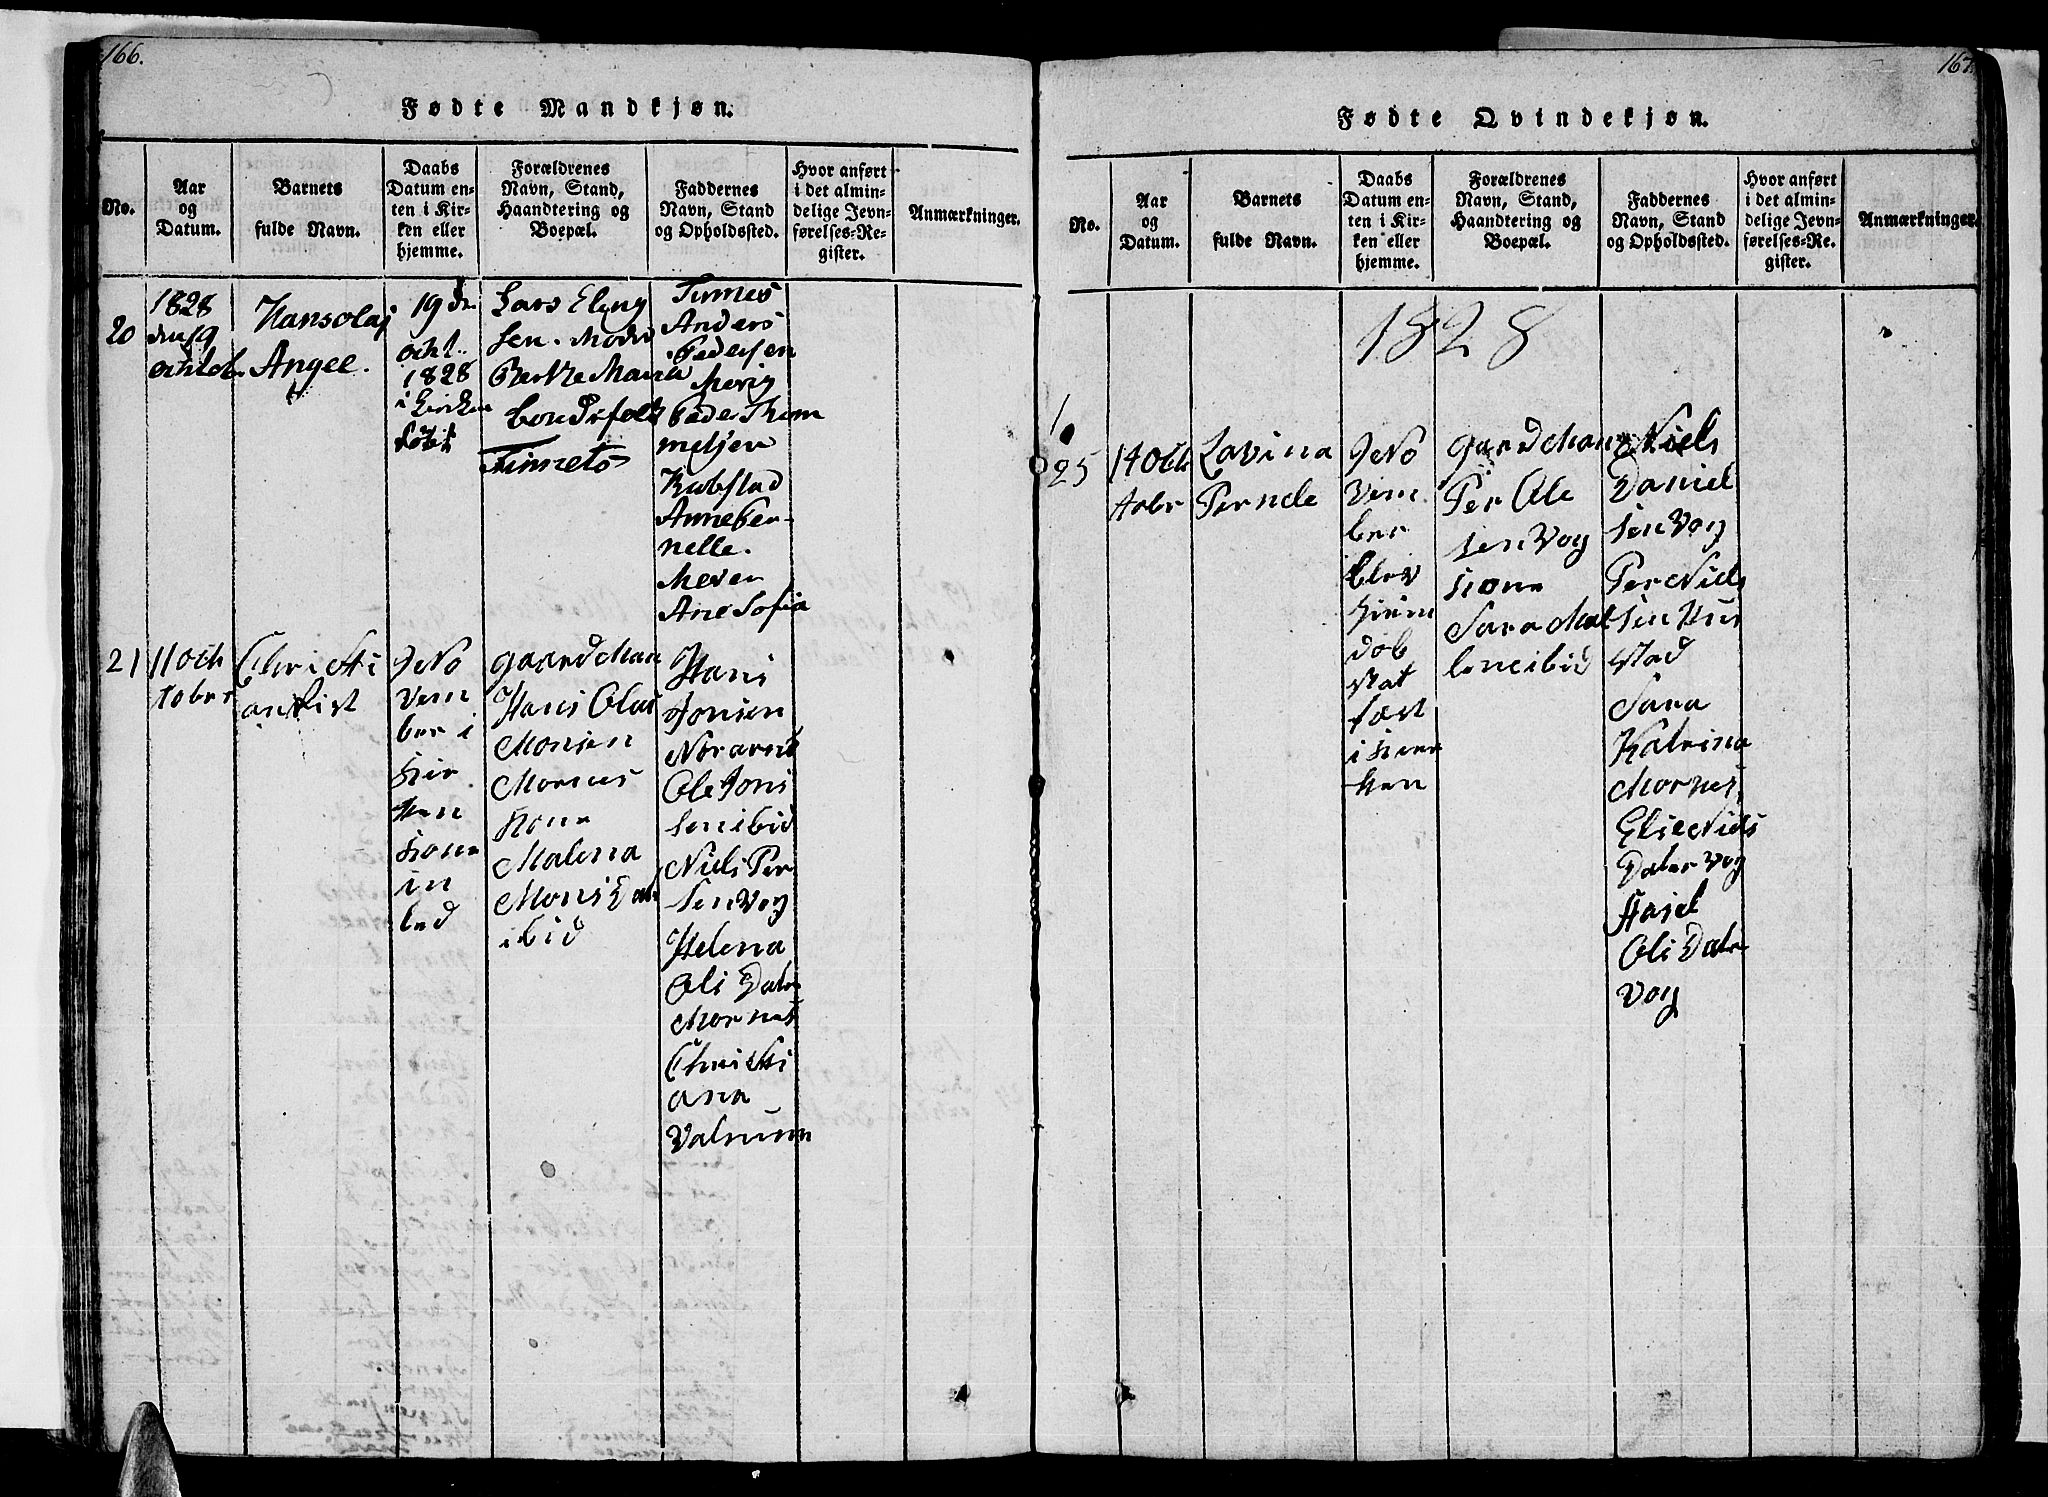 166.
Fødte Mandkjøn.
No.
Aar
og
Datum.
Barnets
fulde Navn.
Daabs
Datum en-
ten i Kir-
ken eller
hjemme.
Forældrenes
Navn, Stand,
Haandtering og
Boepæl.
Faddernes
Navn, Stand
og Opholdssted.
Hvor anført
i det almin-
delige Jevn-
førelses-Re-
gister.
Anmærkninger.
20
1828
den 19
Hansolai
Angel.
19 de
ocht..
1828
i kirken
Døbt
Lars Eling
sen. Moder
Maria
bondefolk
Finnes
Anders
Pedersen
Pede Thom
Anne Per-
nelle.
Ane Sofia
21
11 Och
tober
Christi
an
9 No
vem
ber i
kir
ken
kone
in
led
gaardMan
Hans Olai
Monsen
Mornes
kone
Malena
Mons Dat
ibid
Hans
Jonsen
Ole Jons
sen ibid
Niels Per
sen Vog
Helena
Oli Dater
Mornes
Christi
ana
167.
Fødte Qvindekjøn.
No.
Aar
og
Datum.
Barnets
fulde Navn.
Daabs
Datum en-
ten i Kir-
ken eller
hjemme.
Forældrenes
Navn, Stand,
Haandtering og
Boepæl.
Faddernes
Navn, Stand
og Opholdssted.
Hvor anført
i det almin-
delige Jevn-
førelses-Re-
gister.
Anmærkninger.
1828
25
14 Och
tobr
Lovina
Pernele
9 No
vem
ber
blev
hiem
døb
stat
fæst
i kirr
ken
gaardMan
Per Ole
sen Vog
kone
Sara Mal
lene ibid
Niels
Daniel
sen Vog
Per Niels
sen Hus
stad
Sara
Katrina
Mornes
Else Niels
Dater Vog
Oli Dater
Vog